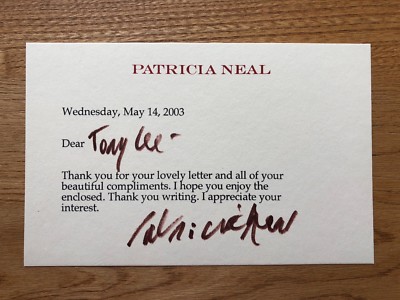 PATRICIA NEAL
Wednesday, May 14, 2003
Dear Tony Lee -
Thank you for your lovely letter and all of your
beautiful compliments. I hope you enjoy the
enclosed. Thank you writing. I appreciate your
interest.
Patricia Neal